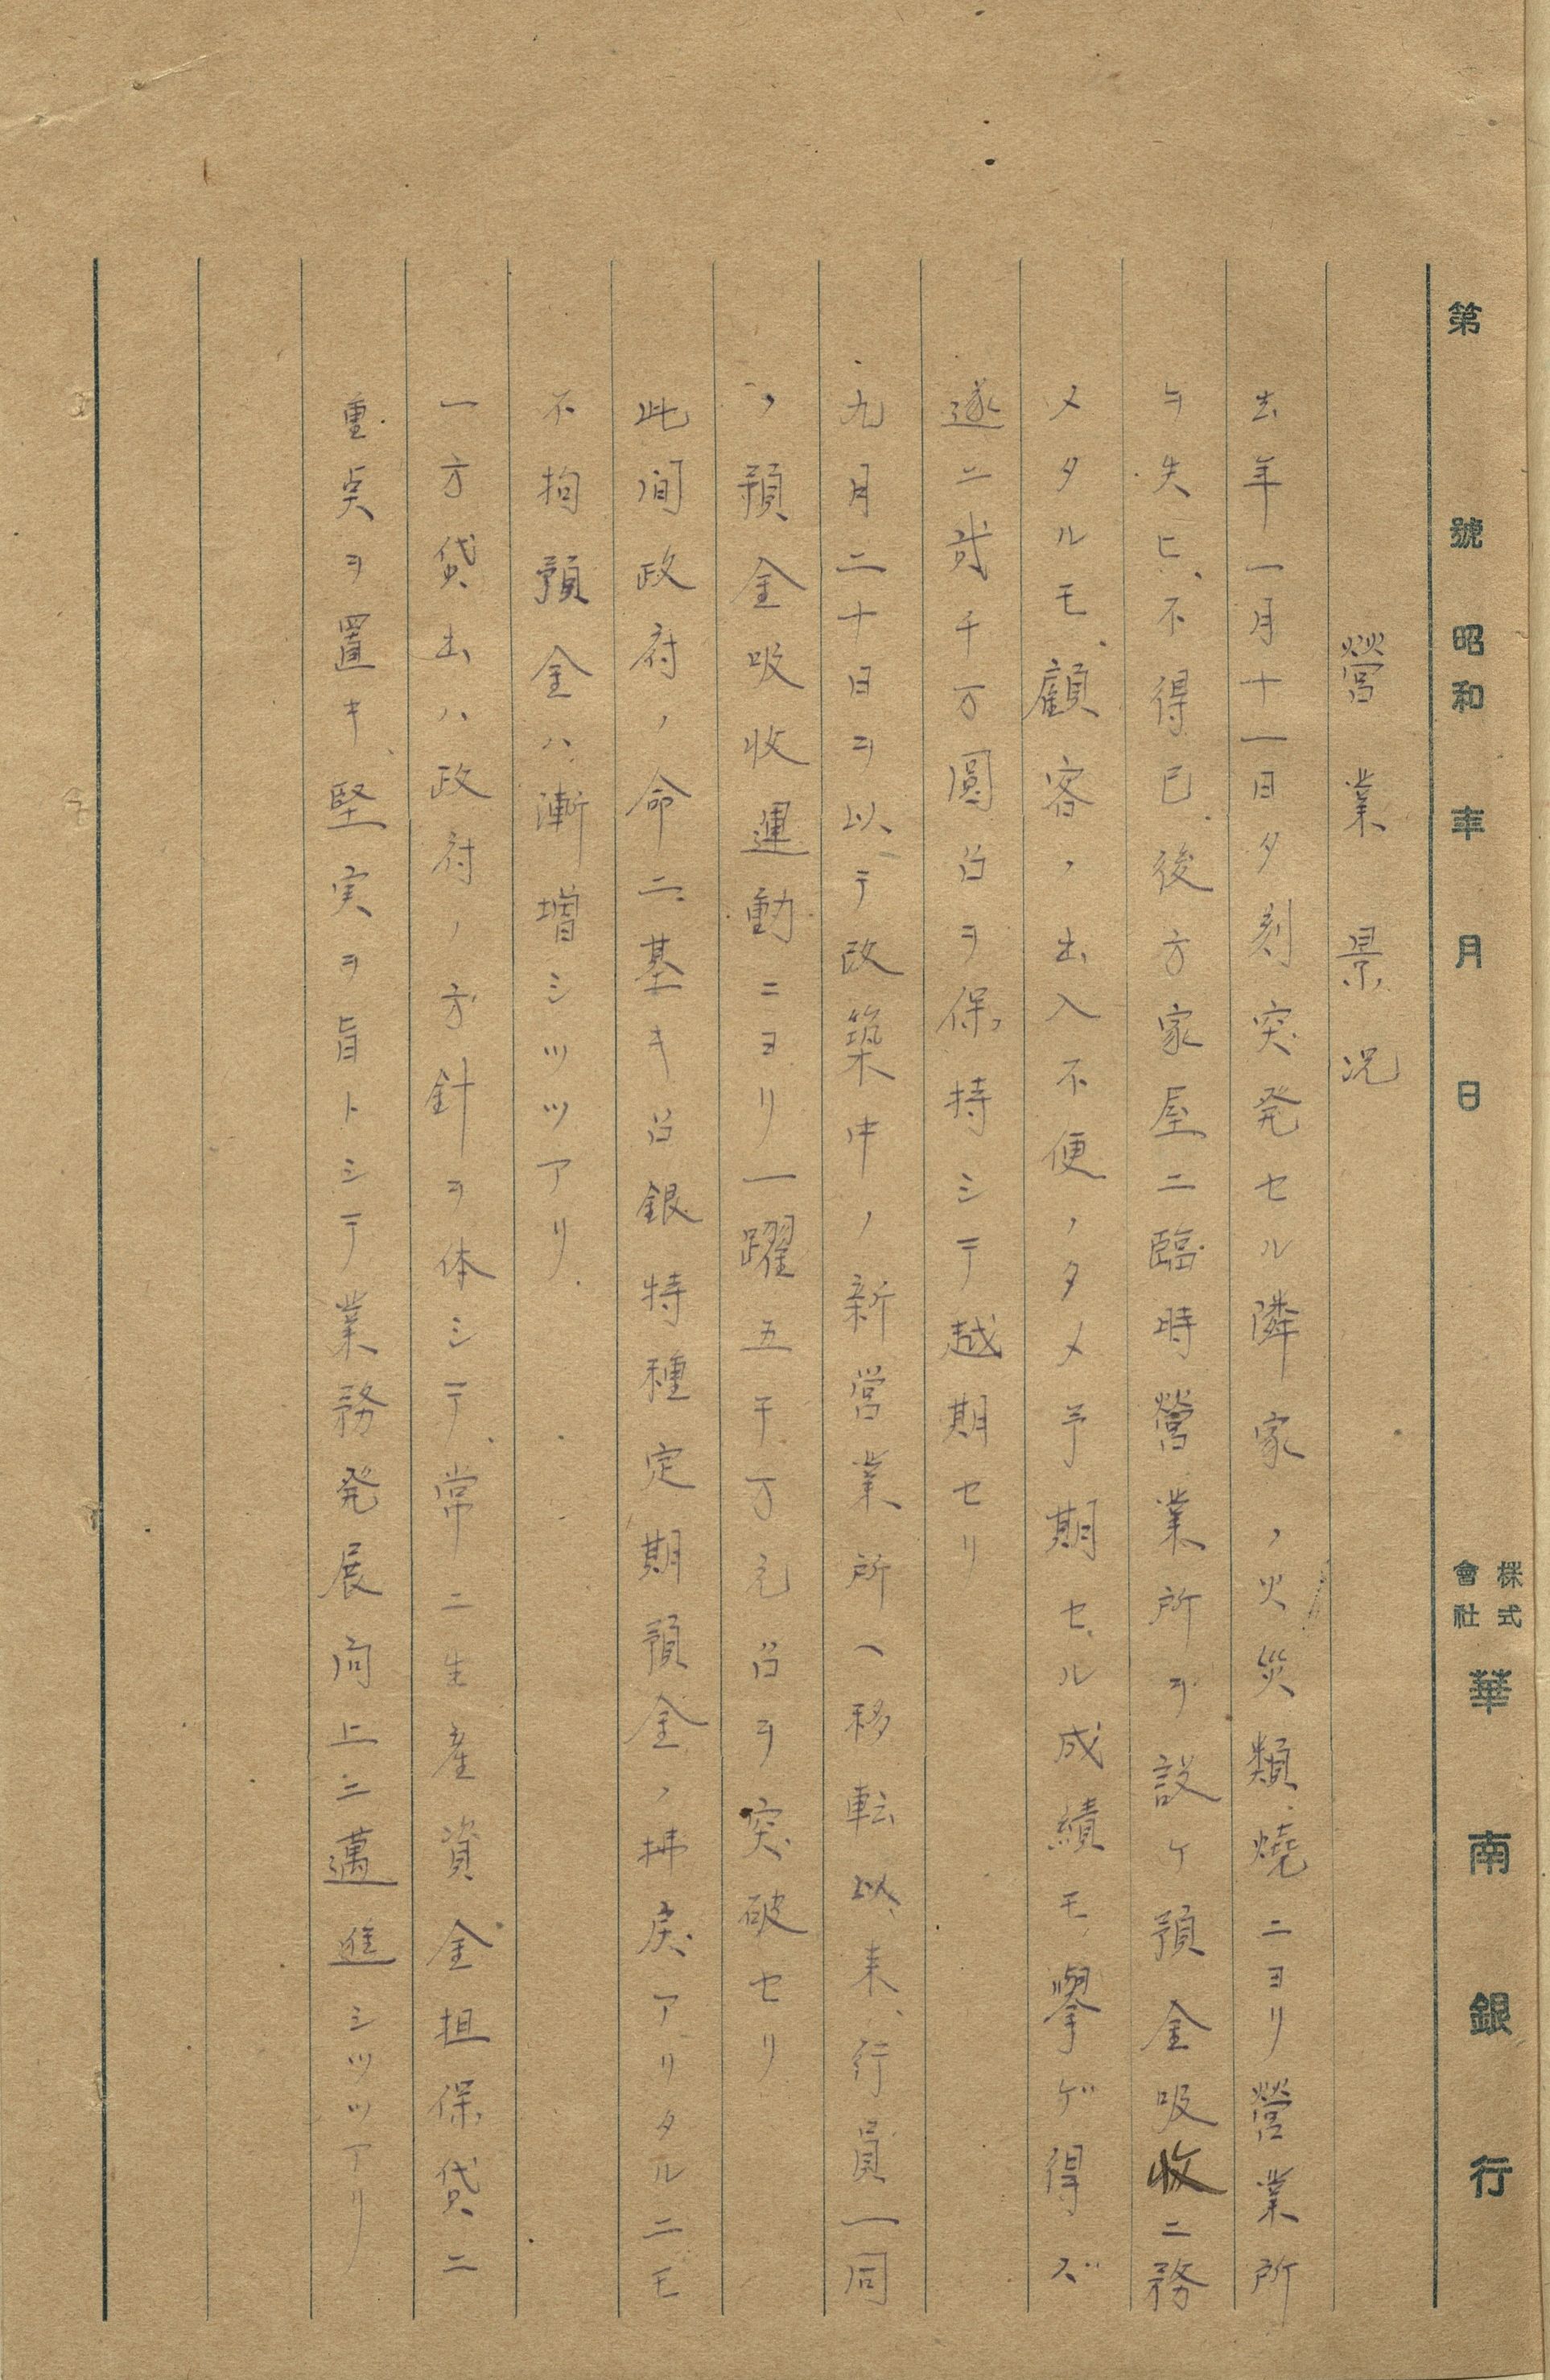 第 號 昭和 年 月 日 株式會社 華南銀行
營業景況
去年一月十一日夕刻突発セル隣家ノ火災類燒ニヨリ營業所
ヲ失ヒ、不得已後方家屋ニ臨時營業所ヲ設ケ預金吸收ニ務
メタルモ、顧客ノ出入不便ノタメ予期セル成績モ擧ゲ得ズ
遂ニ貳千万圓台ヲ保持シテ越期セリ
九月二十日ヲ以テ改築中ノ新営業所ヘ移転以来、行員一同
ノ預金吸收運動ニヨリ一躍五千万元台ヲ突破セリ
此间政府ノ命ニ基キ台銀特種定期預金ノ拂戻アリタルニモ
不拘預金ハ漸增シツツアリ.
一方貸出ハ政府ノ方針ヲ体シテ、常ニ生産資金担保貸ニ
重点ヲ置キ、堅実ヲ旨トシテ業務発展向上ニ邁進シツツアリ